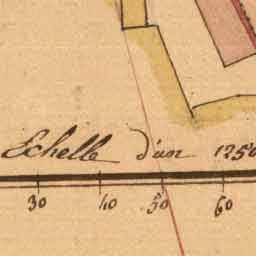 Echelle d'un 1250
30 40 50 60